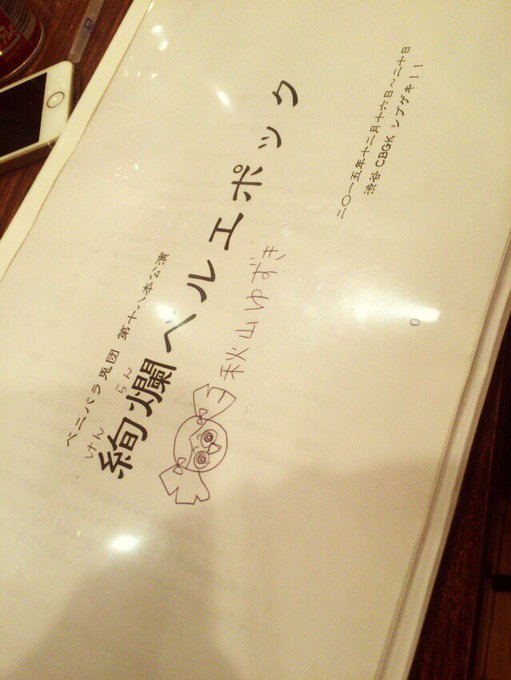 ベニバラ兎団 第十八本公演
けんらん
絢爛ベルエポック
秋山ゆずき
二〇一五年十二月十六日~二十日
渋谷 CBGK シブゲキ!!
0